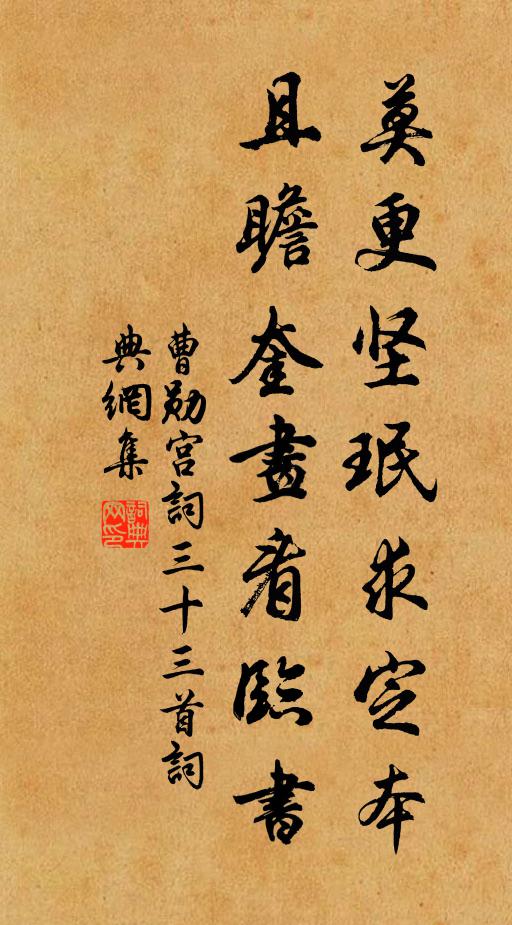 莫更坚珉求定本
且瞻奎畫看臨書
曹勛宫詞三十三首詞
典網集
詞典
网印